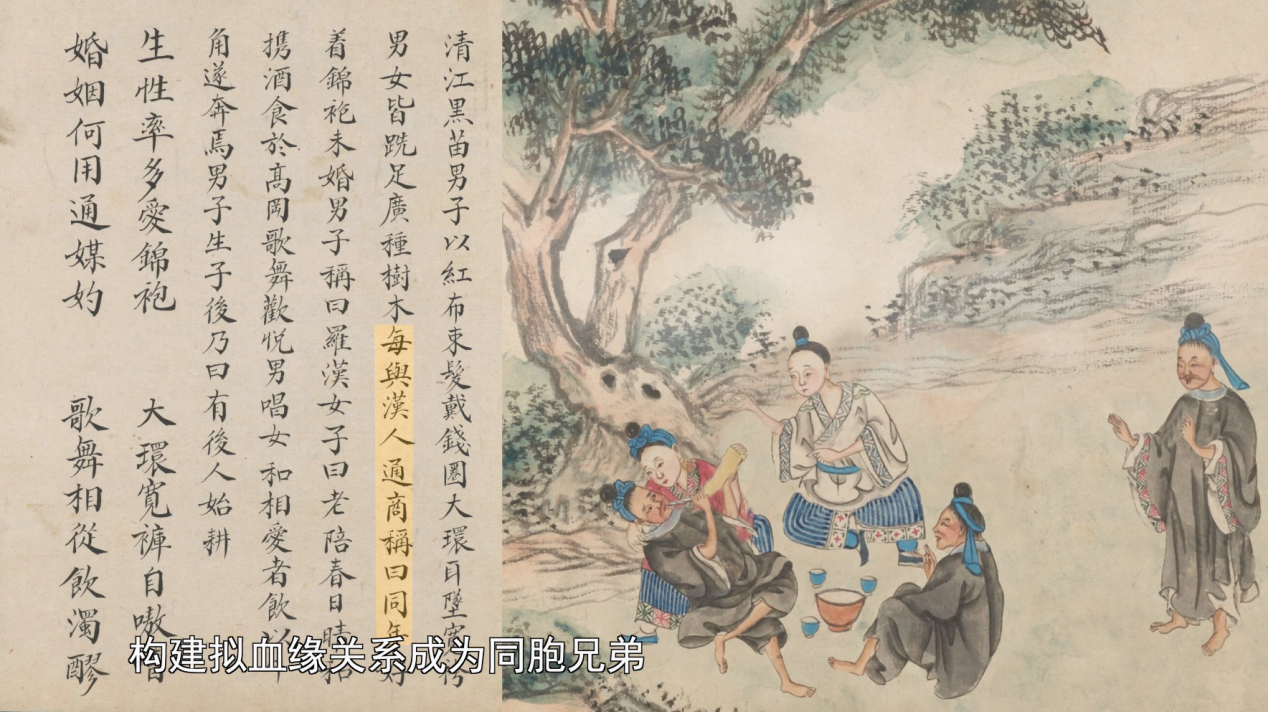 清江黑苗男子以紅布束髮戴錢圈大環耳墜寬袴
男女皆跣足廣種樹木每與漢人通商稱曰同年好
着錦袍未婚男子稱曰羅漢女子曰老陪春日晴和
携酒食於高岡歌舞歡悅男唱女和相愛者飲以牛
角遂奔焉男子生子後乃曰有後人始耕
生性率多愛錦袍 大環寬褲自嗷
婚姻何用通媒妁 歌舞相從飲濁醪
构建拟血缘关系成为同胞兄弟